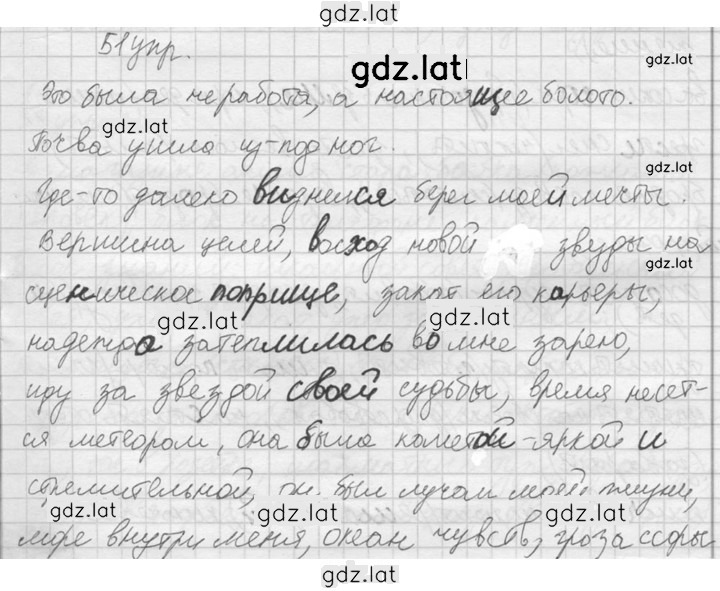 gdz.lat
51 упр.
gdz.lat
Это была не работа, а настоящее болото.
gdz.lat
gdz.lat
Почва ушла из-под ног.
gdz.lat
Где-то далеко виднелся берег моей мечты.
Вершина целей, восход новой звезды на
gdz.lat
сценическое поприще, закат его карьеры,
gdz.lat gdz.lat
надежда затеплилась во мне зарею,
иду за звездой своей судьбы, время несет-
ся метеором, она была кометой - яркой и
стремительной, он был лучом моей жизни,
gdz.lat gdz.lat gdz.lat
море внутри меня, океан чувств, гроза ссоры
gdz.lat